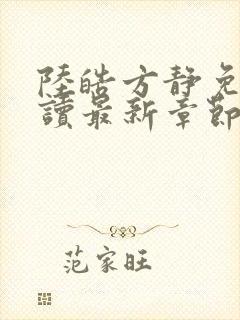 陸皓方靜免
讀最新章節
范家旺